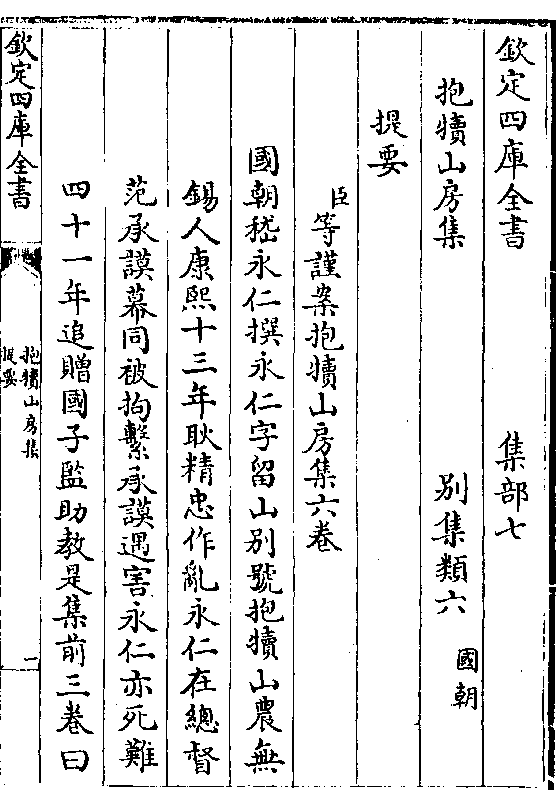 欽定四庫全書　集部七
抱犢山房集　別集類六國朝
提要
臣等謹案抱犢山房集六卷
國朝嵇永仁撰永仁字留山別號抱犢山農無
錫人康熙十三年耿精忠作亂永仁在總督
范承謨幕同被拘繫承謨遇害永仁亦死難
四十一年追贈國子監助教是集前三卷曰
欽定四庫全書
抱犢山房集
提要
一